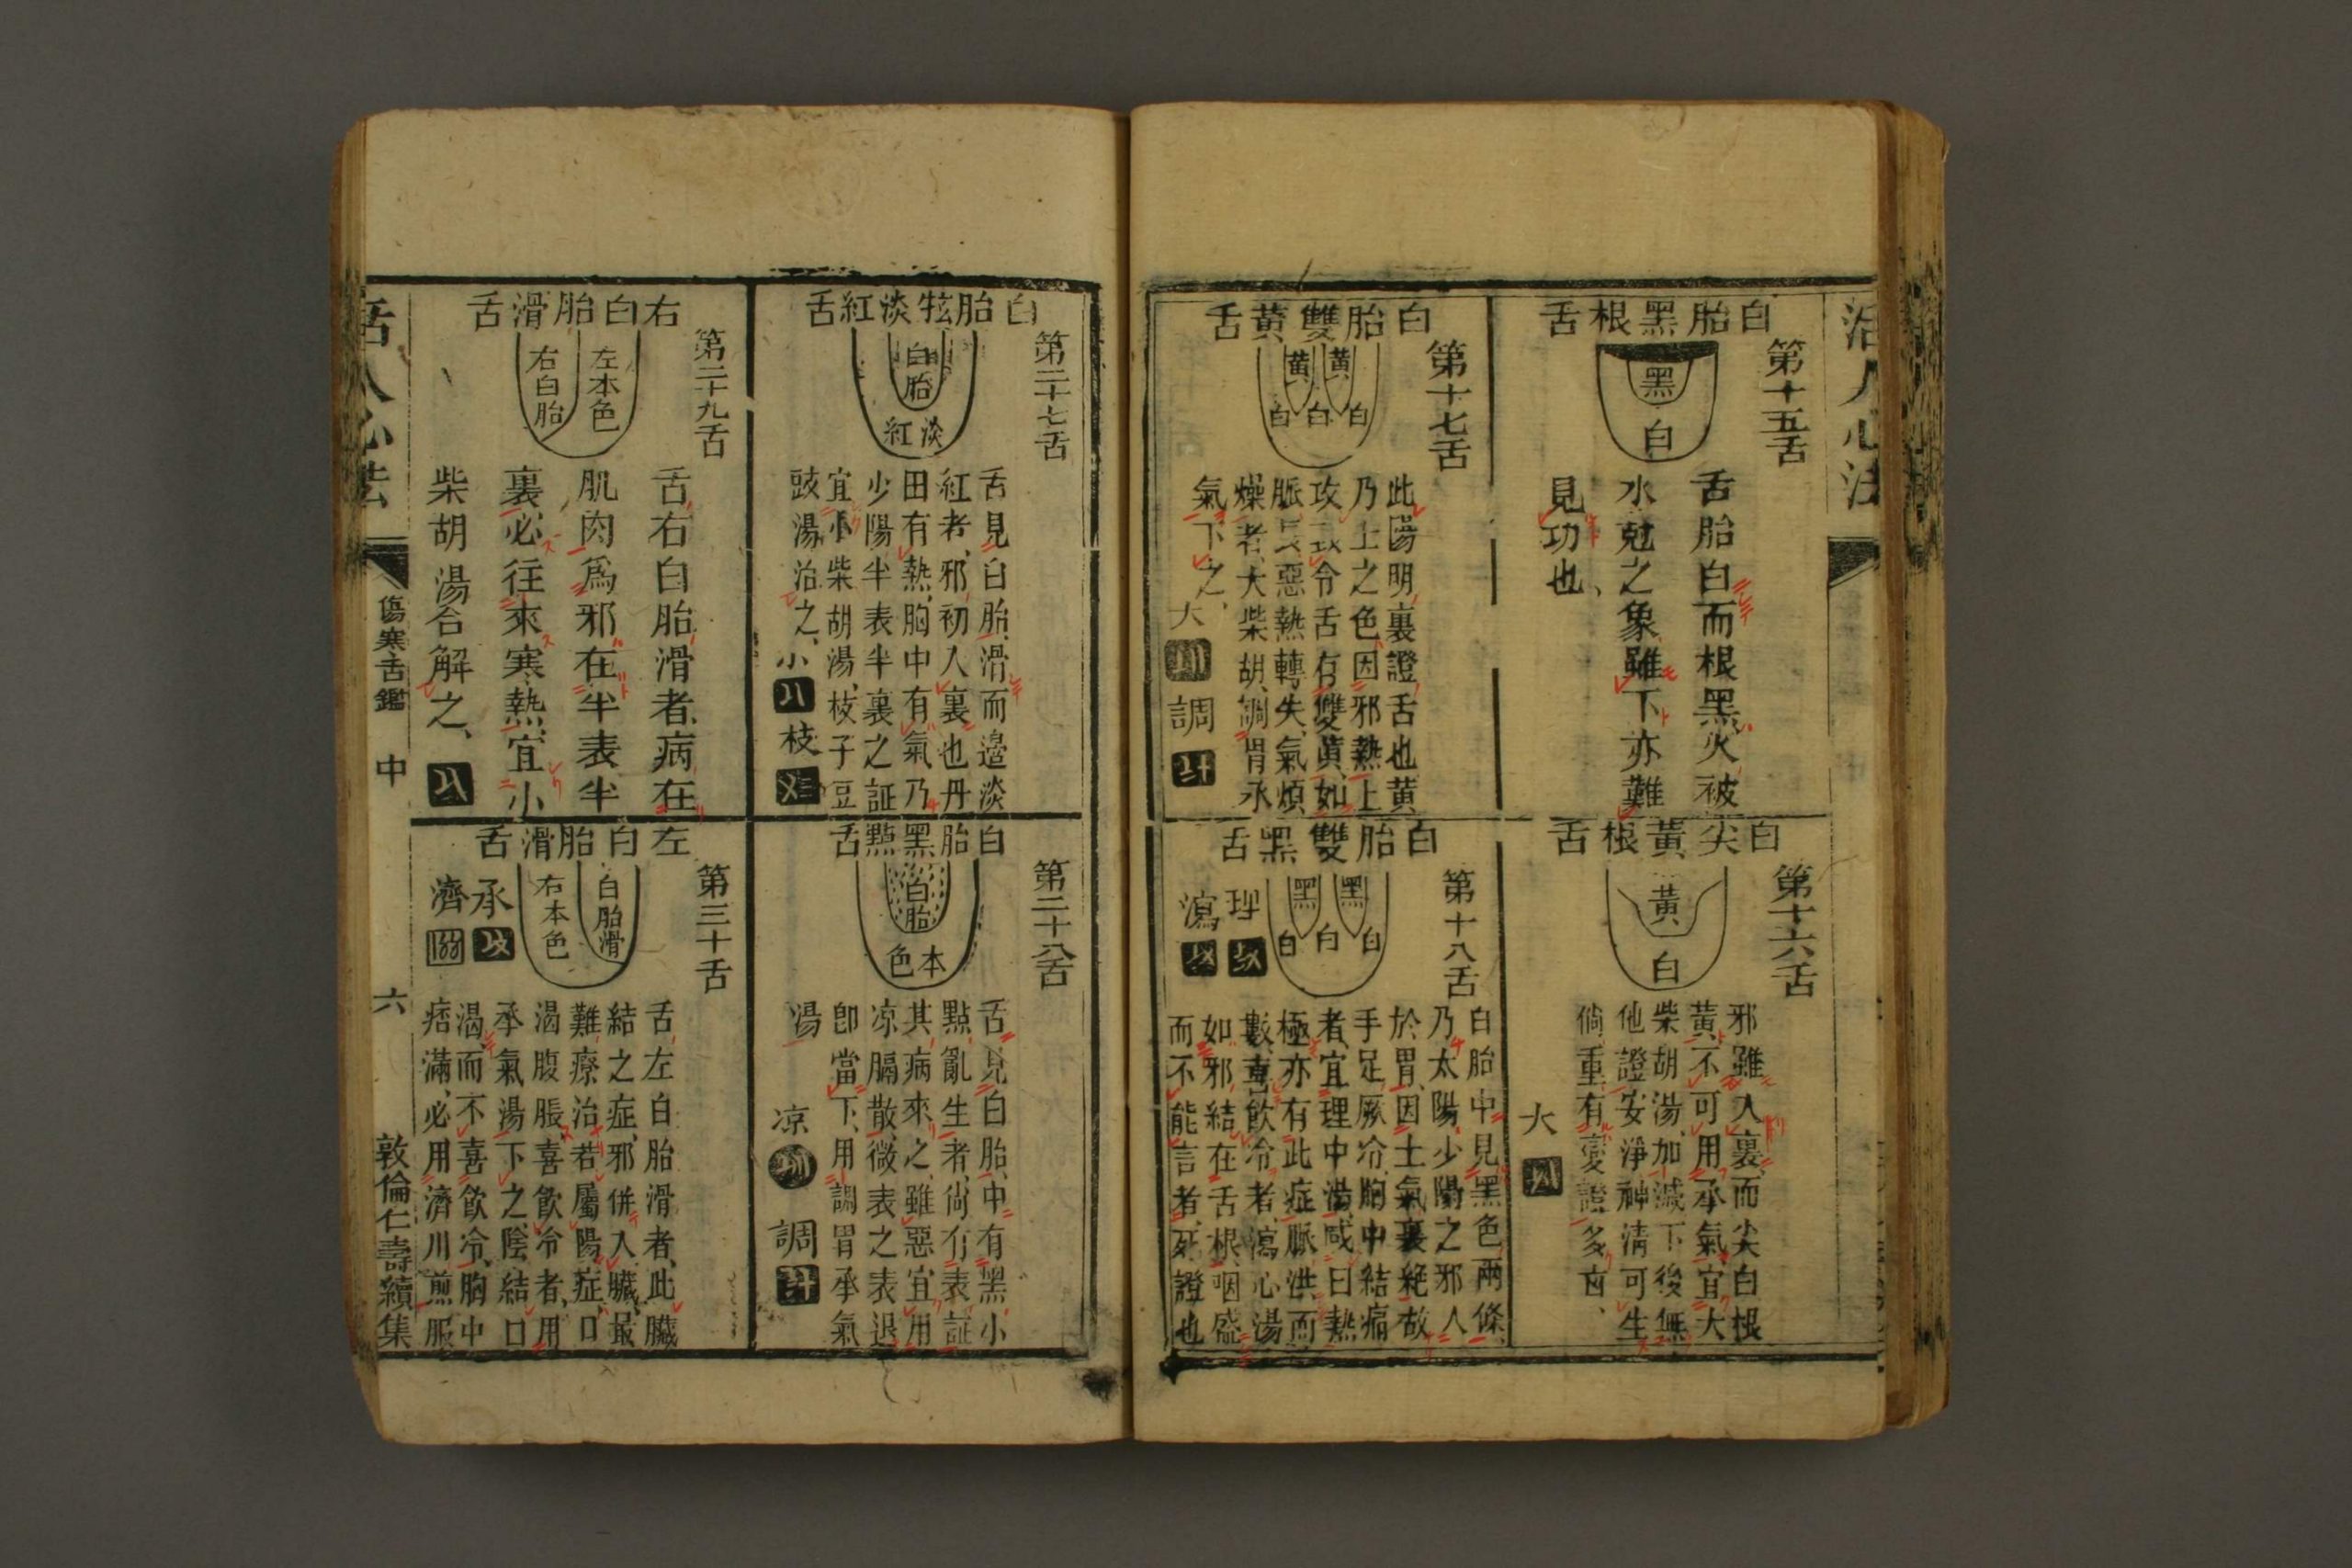 活人心法
白胎黑根舌
第十五舌
黑
白
舌胎白而根黑火被
水尅之象雖下亦難
見功也
白尖黃根舌
第十六舌
黃
白
邪雖入裏而尖白根
黃不可用承氣宜大
柴胡湯加減下後無
他證安淨神清可生
倘重有變證多凶
大
白胎雙黃舌
第十七舌
黃 黃
白 白 白
此陽明裏證舌也黃
乃土之色因邪熱上
攻致令舌有雙黃如
脈長惡熱轉失氣煩
燥者大柴胡調胃承
氣下之
大
調
白胎雙黑舌
第十八舌
黑 黑
白 白 白
理
瀉
白胎中見黑色兩條
乃太陽少陽之邪入
於胃因土氣衰絕故
手足厥冷胸中結痛
者宜理中湯
極亦有此症脈洪而
數喜飲冷者瀉心湯
如邪結在舌根咽盛
而不能言者死證也
白胎牷淡紅舌
第二十七舌
白胎
淡紅
舌見白胎滑而邊淡
紅者邪初入裏也丹
田有熱胸中有氣乃
少陽半表半裏之証
宜小柴胡湯枝子豆
豉湯治之
小八
枝
白胎黑點舌
第二十八舌
白胎
本色
舌見白胎中有黑小
點亂生者尙有表証
其病來之雖惡宜用
凉膈散微表之表退
即當下用調胃承氣
湯
凉
調
右白胎滑舌
第二十九舌
左本色
右白胎
舌右白胎滑者病在
肌肉爲邪在半表半
裏必往來寒熱宜小
柴胡湯合解之
八
左白胎滑舌
第三十舌
白胎滑
右本色
承
濟
舌左白胎滑者此臟
結之症邪併入臟最
難療治若屬陽症口
渴腹脹喜飲冷者用
承氣湯下之陰結口
渴而不喜飲冷胸中
痞滿必用濟川煎服
活人心法
傷寒舌鑑
中
六
敦倫仁壽續集